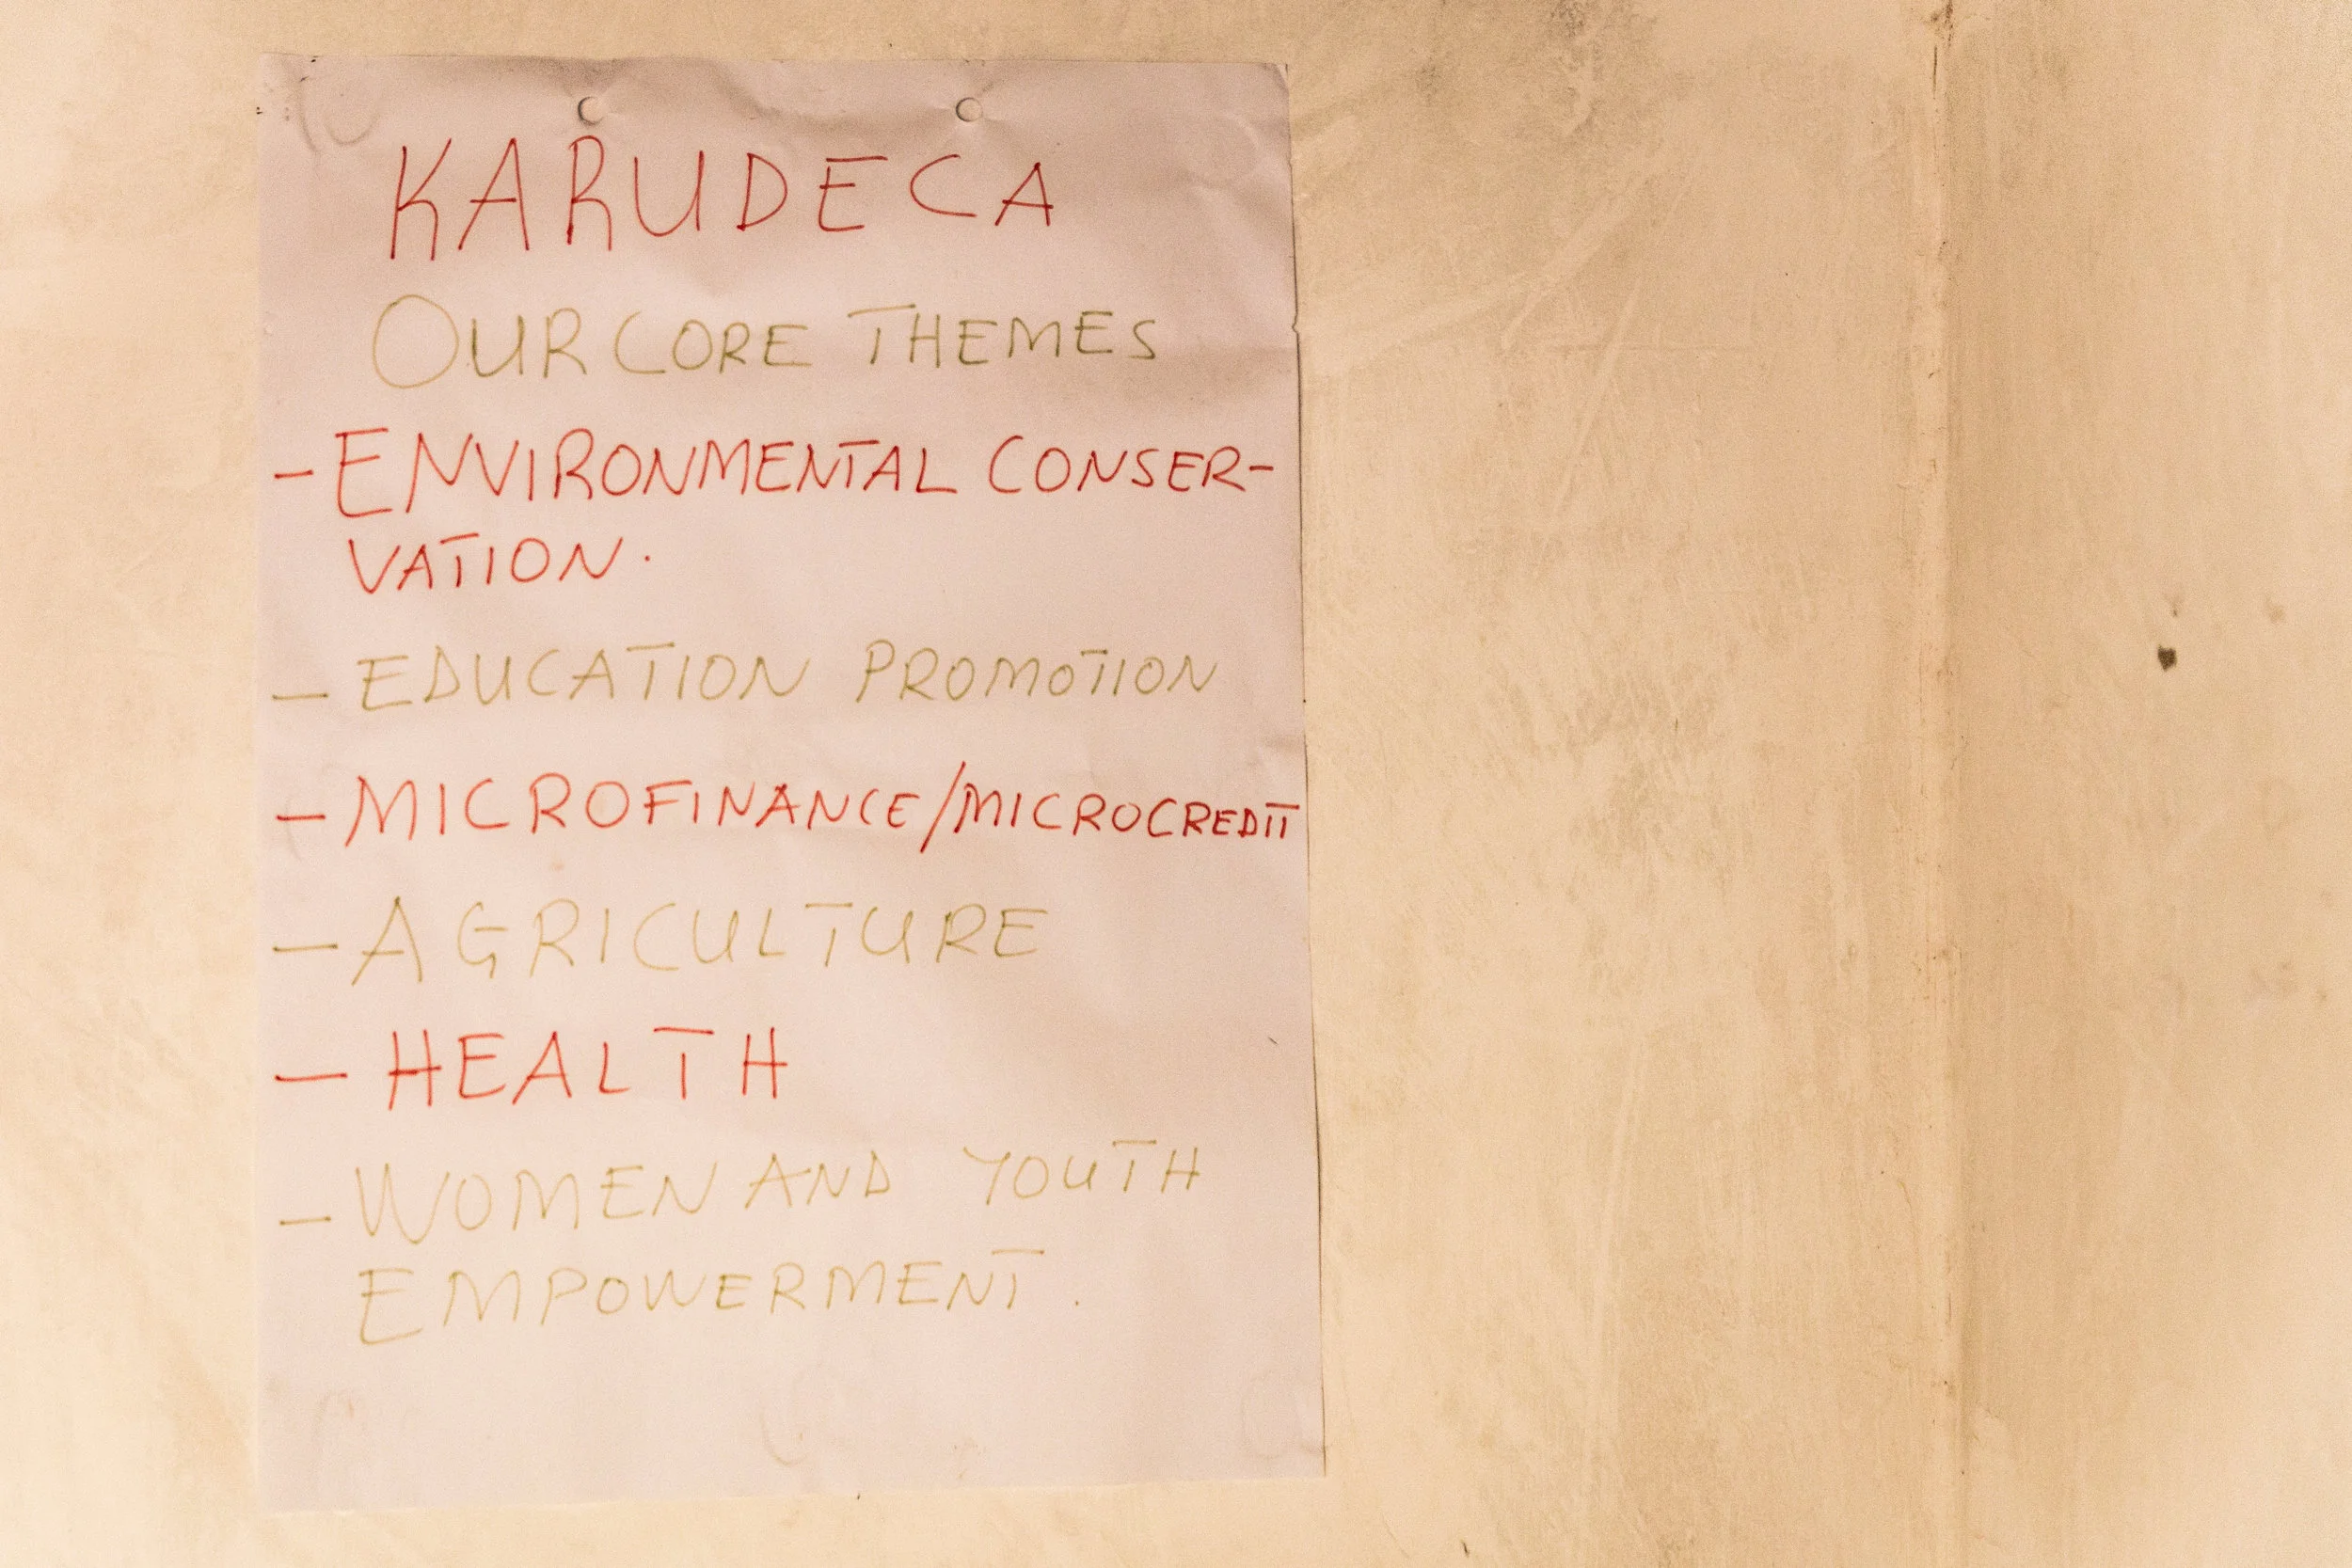 KARUDECA
OUR CORE THEMES
- ENVIRONMENTAL CONSER-
VATION.
- EDUCATION PROMOTION
- MICROFINANCE/MICROCREDIT
- AGRICULTURE
- HEALTH
- WOMEN AND YOUTH
EMPOWERMENT.